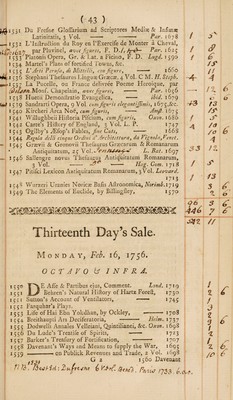 ( 43 )
1531 Du Fresne Glossarium ad Scriptores Mediæ & Infimæ
Latinitatis, 3 Vol. — Par. 1678
1532 L'Instruction du Roy en l'Exercise de Monter à Cheval,
par Pluvinel, avec figures, F. D. Par. 1625
1533 Platonis Opera, Gr. & Lat. a Ficino, F. D. Lugd. 1590
1534 Martel's Plans of fortified Towns, &c.
1535 L'Arti Parisi, di Mitelli, con figure, — 1660
1536 Stephani Thesaurus Linguæ Græcæ, 4 Vol. C M. H. Steph.
1537 La Pucelle, ou France delivrée Poeme Heroique, par
Mons. Chapelain, avec figures, — Par. 1656
1538 Huetii Demonstratio Evangelica, — ibid. 1679
1539 Sandrarti Opera, 9 Vol. cum figuris elegantissimis, 1675, &c.
1540 Kircheri Arca Noë, cum figuris, Amst. 1675
1541 Willughbeii Historia Piscium, cum figuris, Oxon. 1686
1542 Carte's History of England, 3 Vol. L. P. 1747
1543 Ogilby's Æsop's Fables, fine Cuts, 1668
1544 Regola delli cinque Ordini d'Architettura, da Vignola, Venet.
1545 Grævii & Gronovii Thesaurus Græcarum & Romanarum
Antiquitatum, 25 Vol. L. Bat. 1697
1546 Sallengre novus Thesaurus Antiquitatum Romanarum,
3 Vol. — Hag. Com. 1718
1547 Pitisci Lexicon Antiquitatum Romanarum, 3 Vol. Leovard.
1713
1548 Wurzeri Uranies Noricæ Basis Astronomica, Norimb. 1719
1549 The Elements of Euclide, by Billingsley, 1570
Thirteenth Day's Sale.
MONDAY, Feb. 16, 1756.
OCTAVO & INFRA.
1550 DE Asse & Partibus ejus, Comment. Lond. 1719
1551 Behren's Natural History of Hartz Forest, 1730
1552 Sutton's Account of Ventilators, — 1745
1553 Farquhar's Plays.
1554 Life of Hai Ebn Yokdhan, by Ockley, — 1708
1555 Breithaupti Ars Decifratoria, — Helm. 1737
1556 Dodwelli Annales Velleiani, Quintiliani, &c. Oxon. 1698
1557 De Lude's Treatise of Spirits, — 1723
1557 Barker's Treatise of Fortification, — 1707
1558 Davenant's Ways and Means to supply the War, 1695
1559 — on Publick Revenues and Trade, 2 Vol. 1698
G 2 1560 Davenant